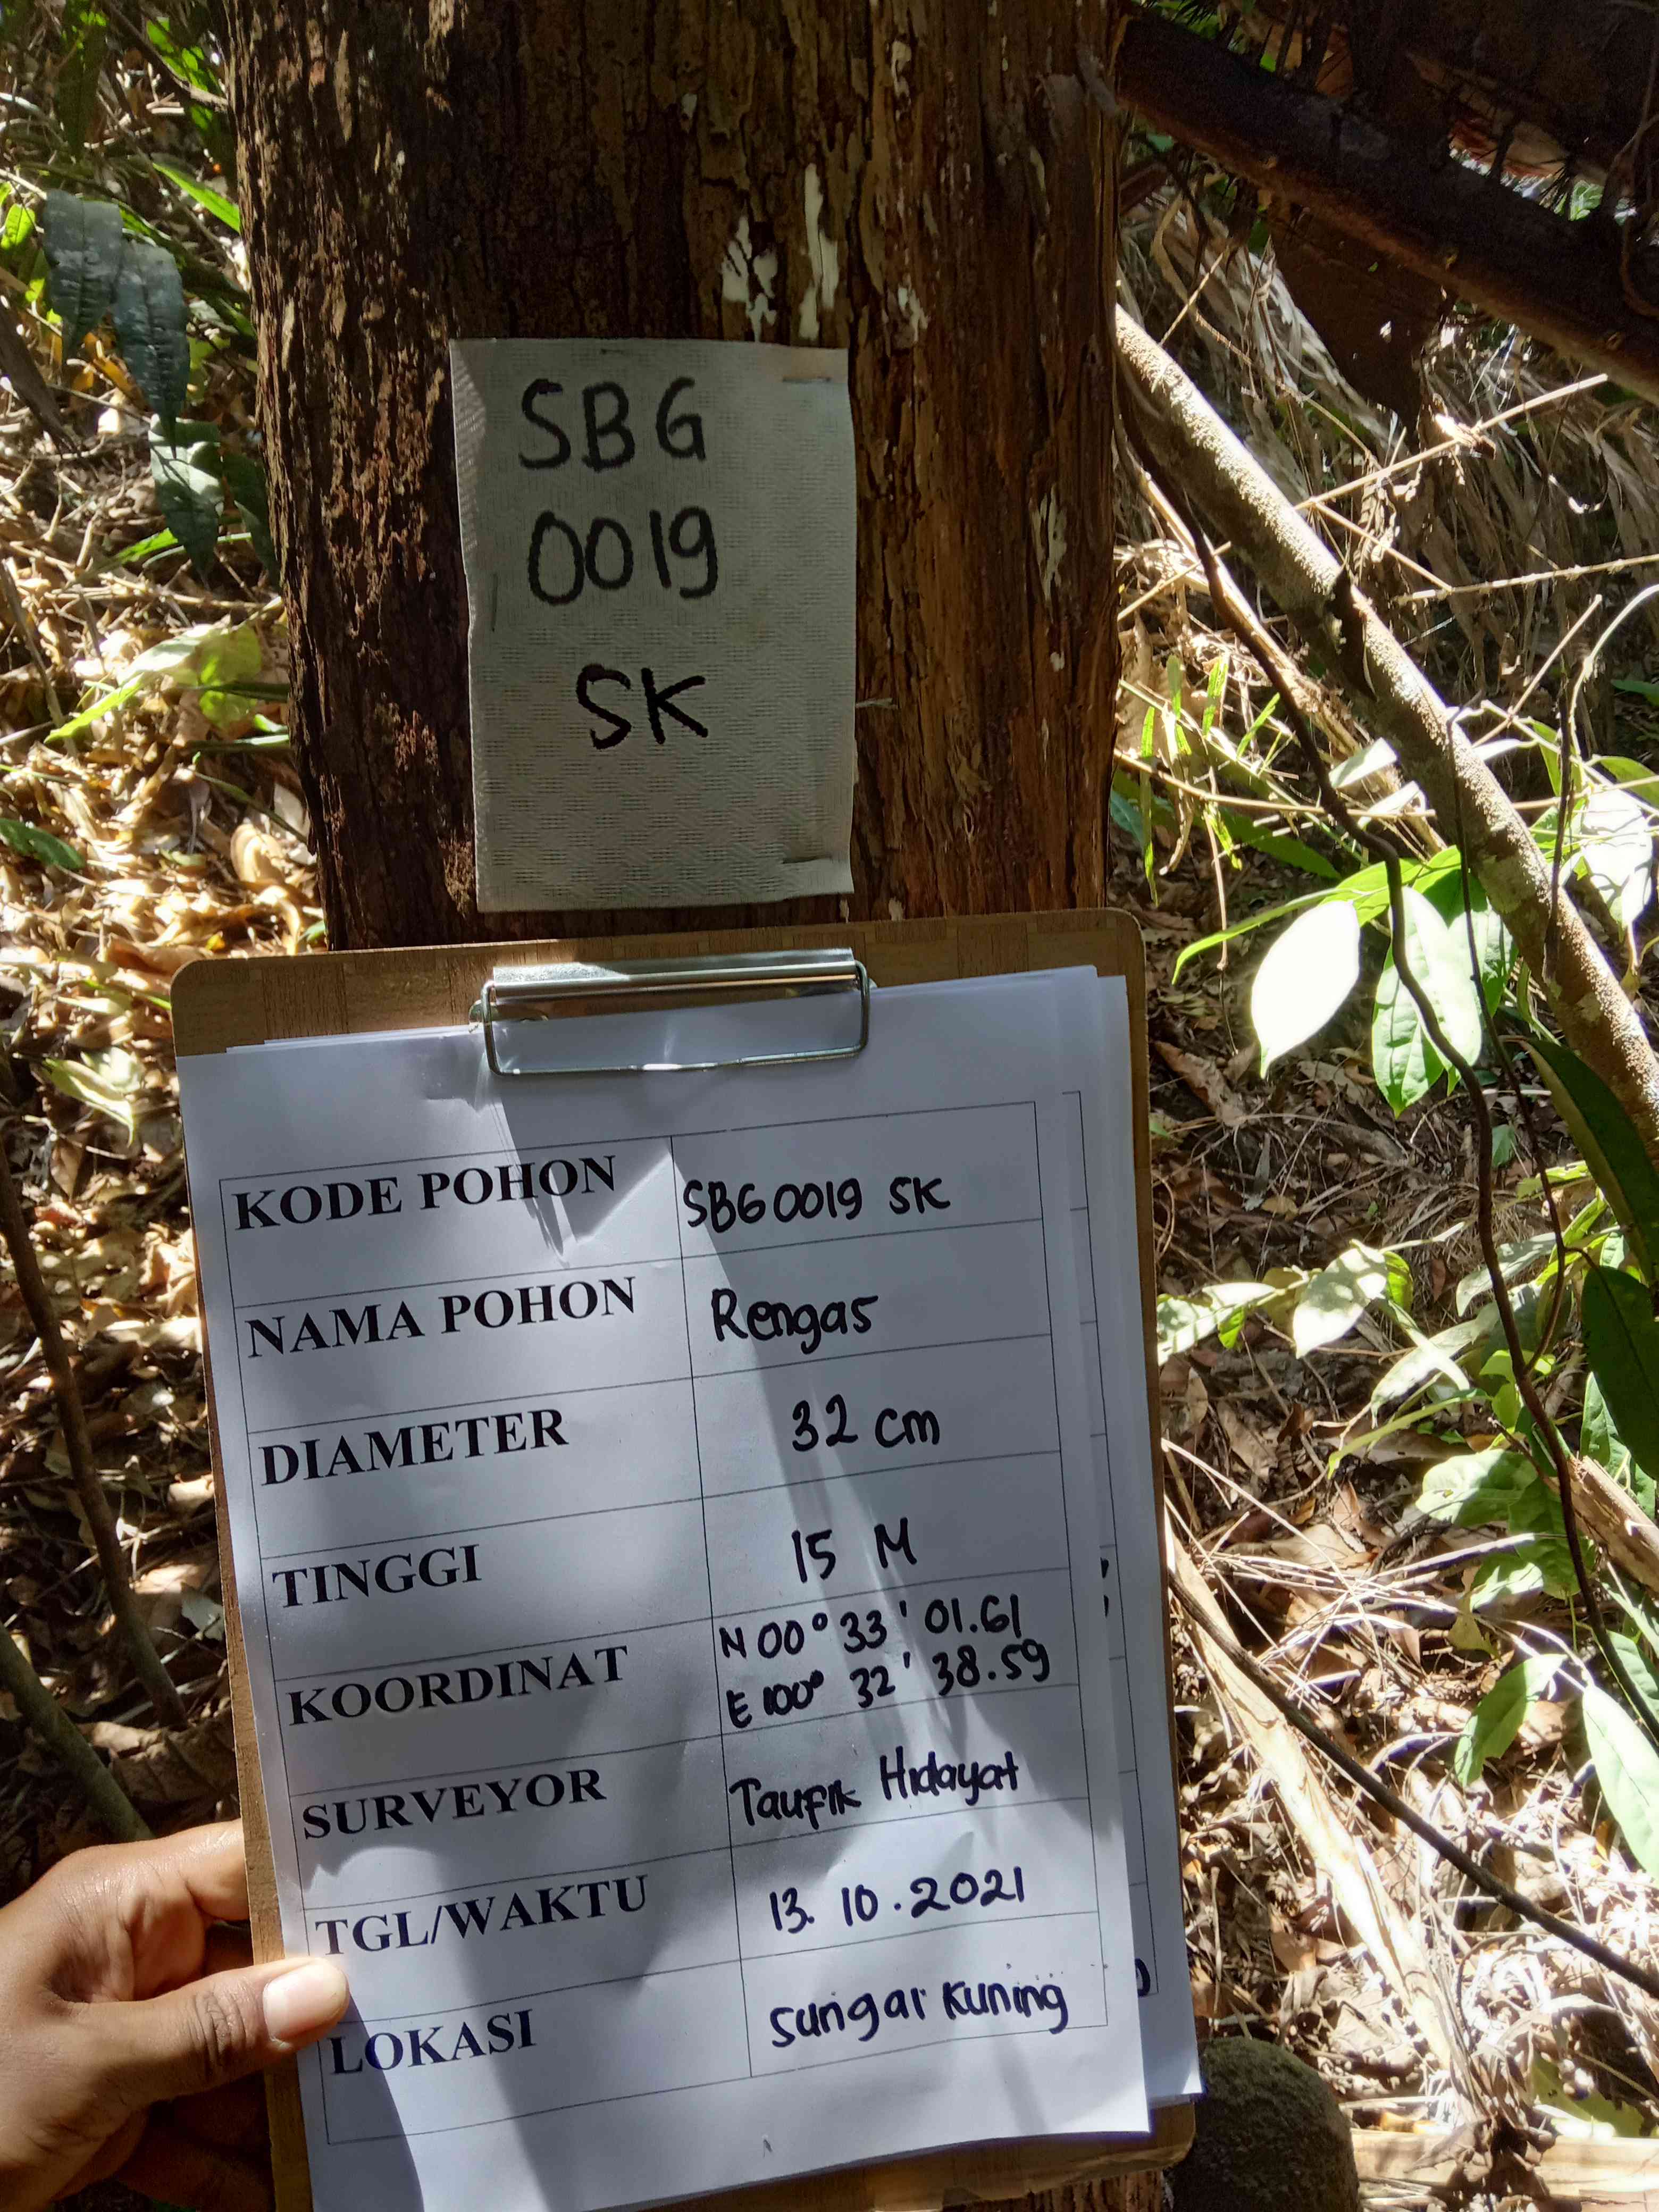 SBG
0019
SK
KODE POHON SBG0019 SK
NAMA POHON Rengas
DIAMETER 32 cm
TINGGI 15 M
KOORDINAT N 00° 33' 01.61
E 100° 32' 38.59
SURVEYOR Taufik Hidayat
TGL/WAKTU 13. 10. 2021
LOKASI Sungai Kuning